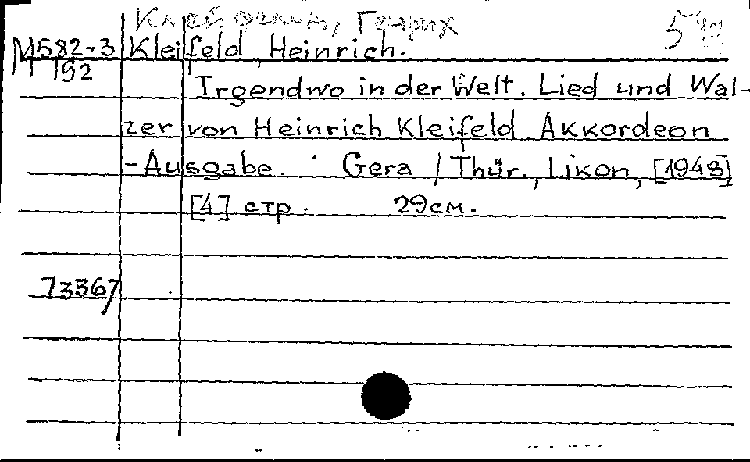 Генрих
M582-3 Kleifeld, Heinrich.
192
Irgendwo in der Welt. Lied und Wal-
zer von Heinrich Kleifeld. Akkordeon
-Ausgabe. Gera / Thür., Likon, [1948]
[4] стр. 29см.
73367